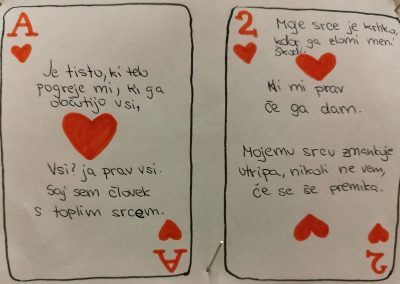 A
Je tisto, ki telo
pogreje mi, ki ga
občutijo vsi,
Vsi? ja prav vsi.
Saj sem človek
s toplim srcem.
A
2
Moje srce je krhko,
kdor ga zlomi meni
škodi.
Ni mi prav
če ga dam.
Mojemu srcu zmankuje
utripa, nikoli ne vem,
če se še premika.
2